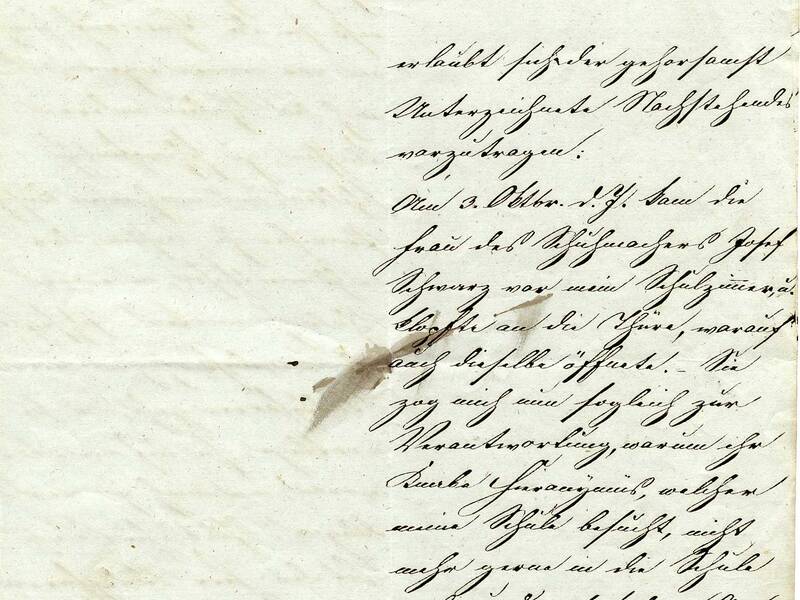 erlaubt sich der gehorsamst
Unterzeichnete Nachstehendes
vorzutragen:
Am 3. Oktbr. d. J. kam die
Frau des Schuhmachers Josef
Schwarz vor mein Schulzimmer, u.
klopfte an die Thüre, worauf
auch dieselbe öffnete. – Sie
zog mich nun sogleich zur
Verantwortung, warum ihr
Knabe Hieronymus, welcher
meine Schule besucht, nicht
mehr gerne in die Schule